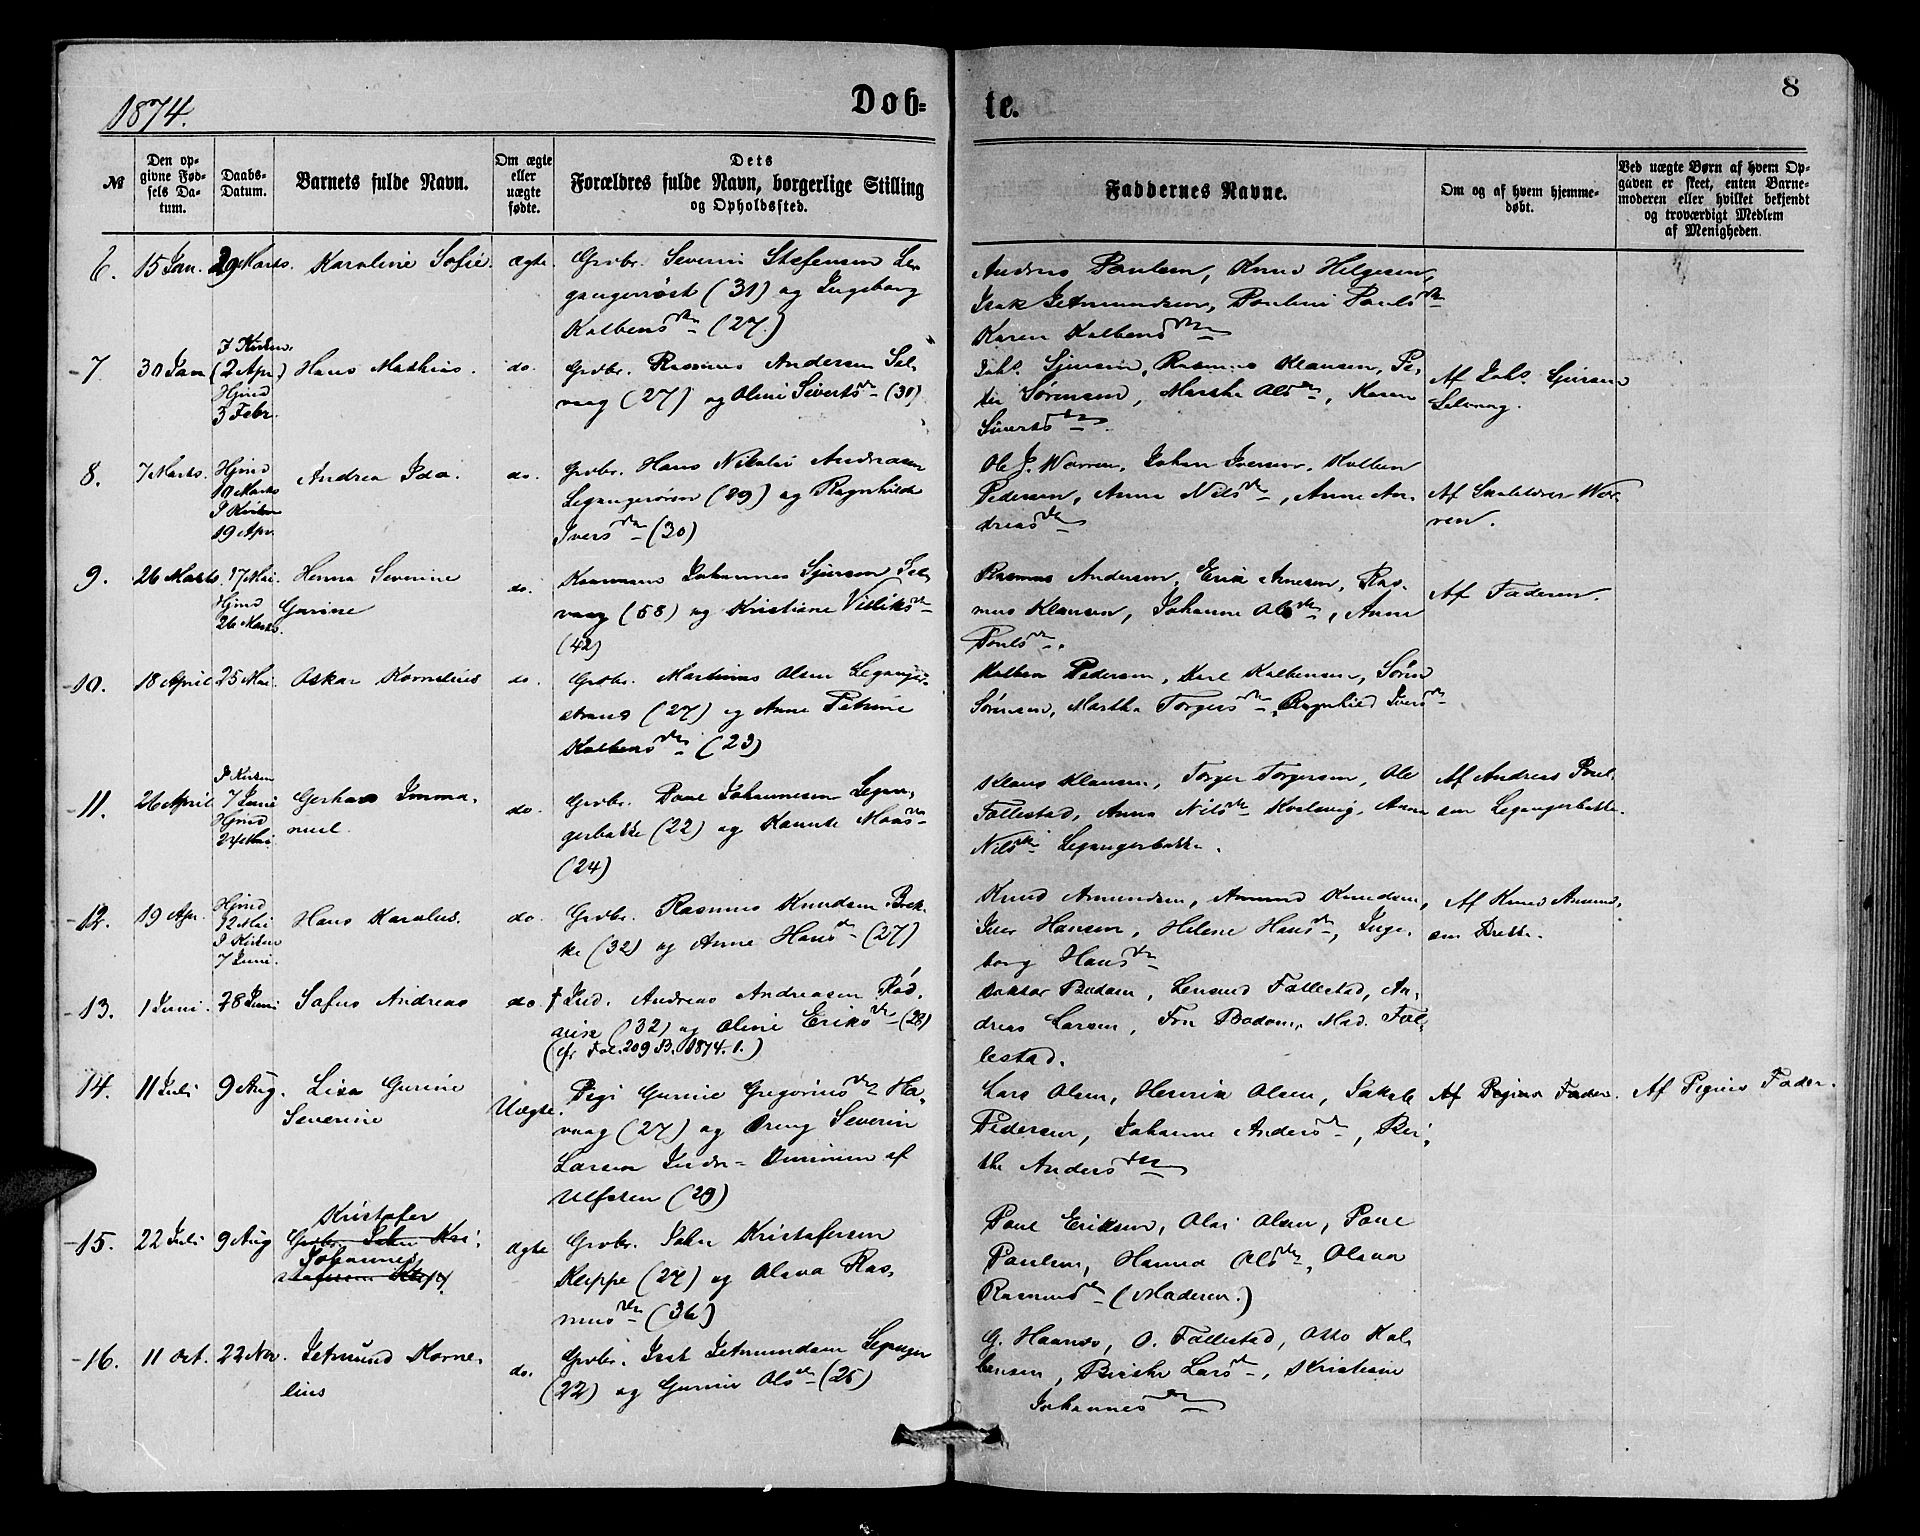 1874.
Døb-
te.
8
№
Den op-
givne Fød-
sels Da-
tum.
Daabs-
Datum.
Barnets fulde Navn.
Om ægte
eller
uægte
fødte.
Dets
Forældres fulde Navn, borgerlige Stilling
og Opholdssted.
Faddernes Navne.
Om og af hvem hjemme-
døbt.
Ved uægte Børn af hvem Op-
gaven er skeet, enten Barne-
moderen eller hvilket bekjendt
og troværdigt Medlem
af Menigheden.
6. 15 Jan. 29 Marts. Karoline Sofie. ægte. Grbr. Severin Stefensen Le-
gangerøst (31) og Ingeborg
Kolbens (27.)
Andreas Paulsen, Knud Helgesen,
Isak Jetmundsen, Pauline Pauls
Karen Kolbens
7 30 Jan I Kirken.
(2 Apr)
Hjmd
3 Febr.
Hans Mathias. do. Grdbr. Rasmus Andersen Sel-
vaag (27) og Oline Siverts (30)
Johs. Sjursen, Rasmus Klausen, Pe-
ter Sørensen, Marthe Ols, Karen
Siverts
Af Johs. Sjursen
Selvaag.
8. 7 Marts. Hjmd
10 Marts
I Kirken
19 Apr.
Andrea Ida. do. Grbr. Hans Nikolai Andreasen
(29) og Ragnhilde
Ivers (30)
Ole J. Warren, Johan Iversen, Kolben
Pedersen, Anna Nils, Anne An-
dreas
Af Skolelærer War-
ren.
9. 26 Marts. 17 Mai
Hjmd
26 Marts.
Henna Severine
Gurine
do. Johannes Sjurson Sel-
vaag (58) og Kristiane Villiks
(42)
Rasmus Andersen, Erik Arnesen, Ras-
mus Klausen, Johanne Ols, Anne
Pouls.
Af Faderen.
10. 18 April 25 Mai Oskar Kornelius do. Grbr. Martinus Olsen Leganger-
strand (27) og Anne Petrine
Kolbens (23)
Kolben Pedersen, Karl Kolbensen, Søren
Sørensen, Martha Torgers, Ragnhild Ivers
11. 26 April I Kirken
7 Juni
Hjmd
24 Mai
Gerhard Imma-
nuel.
do. Grbr. Poul Johannesen Legan-
gerbakke (22) og Kanute Mons
(24)
Klaus Klausen, Torger Torgersen, Ole
Follestad, Anna Nils Kvalsvig, Anne
Nils Legangerbakke.
Af Andreas Poul-
sen Legangerbakke
12. 19 Apr. Hjmd
12 Mai
I Kirken
7 Juni.
Hans Karolus. do. Grbr. Rasmus Knudsen Brek-
ke (32) og Anne Hans (27)
Knud Amundsen, Amund Knudsen,
Iver Hansen, Helene Hans, Inge-
borg Hans
Af Knud Amund-
sen Brekke.
13. 1 Juni. 28 Juni Sofus Andreas do. † Ind. Andreas Andreasen Rød-
(32) og Oline Eriks (28)
(cfr. Fol. 209 B. 1874. 1.)
Doktor Bodom, Lensmd Follestad, An-
dreas Larsen, Fru Bodom, Mad. Fol-
lestad.
14. 11 Juli 9 Aug. Lisa Gurine
Severine
Uægte. Pige Gurine Gregorius Ha-
vaag (27) og Dreng Severin
Larsen af
Ulfsten (29)
Lars Olsen, Henrik Olsen, Jakob
Pedersen, Johanne Anders, Ber-
the Anders
Af Pigens Fader. Af Pigens Fader.
15. 22 Juli 9 Aug Kristofer
Grbr. John Kri-
Johannes
stofersen
ægte Grbr. John Kristofersen
Kleppe (27) og Olava Ras-
mus (36)
Poul Eriksen, Olai Olsen, Poul
Poulsen, Hanna Ols, Olava
Rasmus (Moderen.)
16. 11 Oct. 22 Nov. Jetmund Korne-
lius
do. Grbr. Isak Jetmundsen Leganger
(22) og Gurine Ols (25)
G. Haanes, O. Follestad, Otto Kol-
bensen, Birthe Lars, Kristiane
Johannes